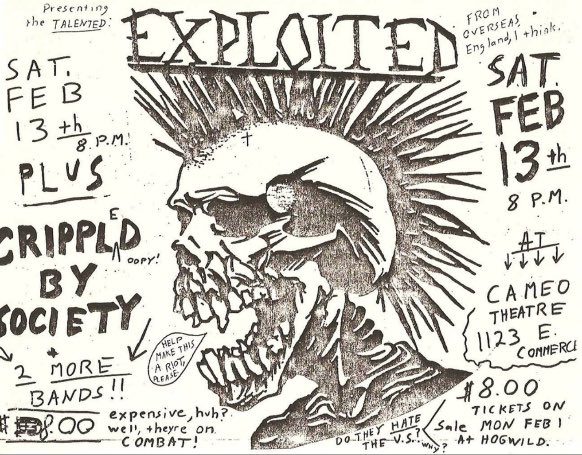 Presenting
the TALENTED:
EXPLOITED
FROM
OVERSEAS,
England, I think.
SAT.
FEB
13th
8 P.M.
PLUS
CRIPPLED
OOPY!
BY
SOCIETY
+
2 MORE
BANDS!!
$8.00
expensive, huh?
well, theyre on
COMBAT!
HELP
MAKE THIS
A RIOT,
PLEASE.
SAT.
FEB
13th
8 P.M.
AT
CAMEO
THEATRE
1123 E.
COMMERCE
$8.00
TICKETS ON
Sale MON FEB 1
AT HOGWILD.
DO THEY HATE
THE U.S.?
WHY?